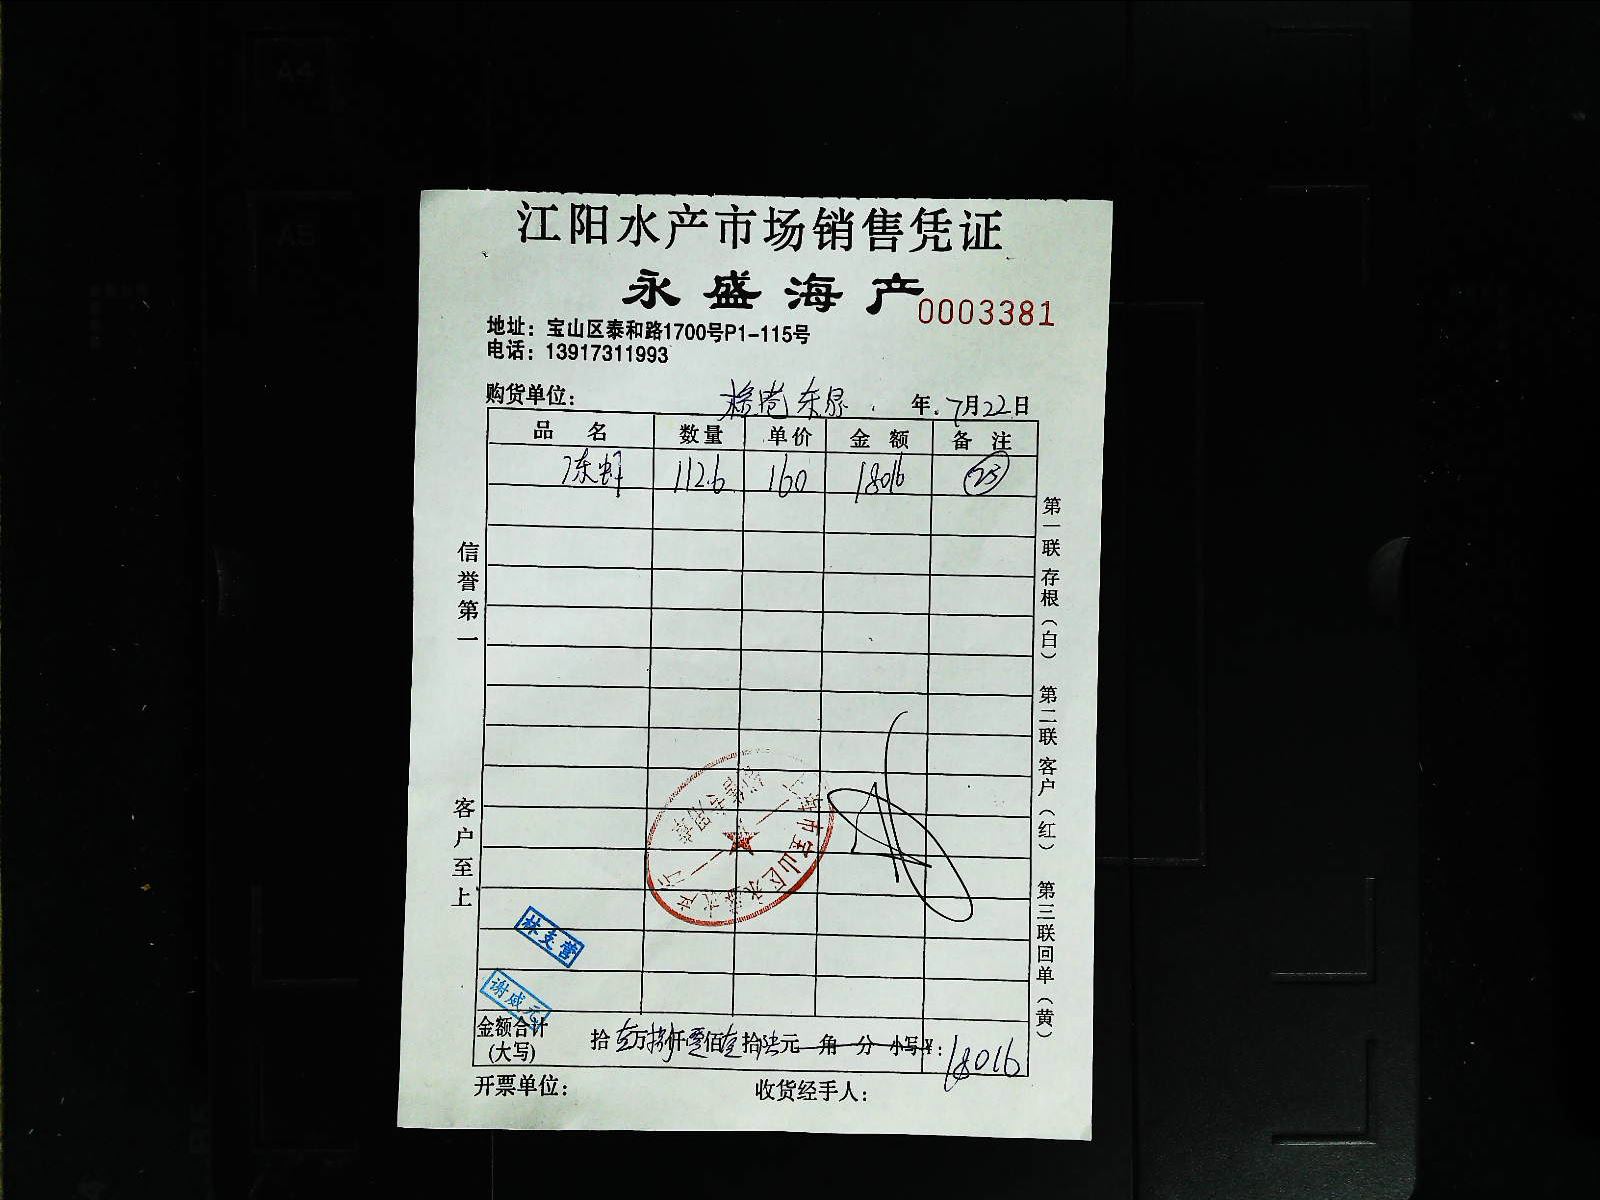 A4
A5
江阳水产市场销售凭证
永盛海产
0003381
地址：宝山区泰和路1700号P1-115号
电话：13917311993
购货单位： 年 7月22日
品名 数量 单价 金额 备注
冻虾 112.6 160 18016 23
信誉第一
客户至上
第一联 存根（白） 第二联 客户（红） 第三联 回单（黄）
销售专用章
市宝山区永盛水产
林支营
谢成元
金额合计(大写) 拾壹万捌仟零佰壹拾陆元角分 小写¥：18016
开票单位： 收货经手人：